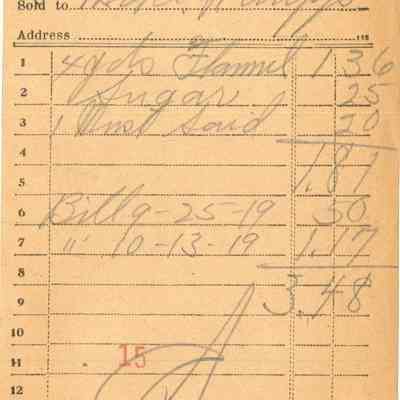 Sold to
Address
1 4 yds Flannel 1 36
2 Sugar 25
3 1 20
4 1.81
5
6 Bill 9-25-19 50
7 " 10-13-19 1.17
8
9 3.48
10
11 15
12